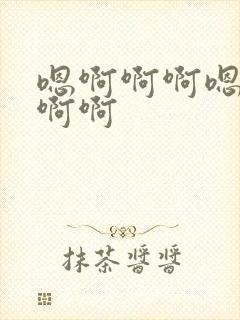 嗯啊啊啊嗯
啊啊
抹茶醬醬